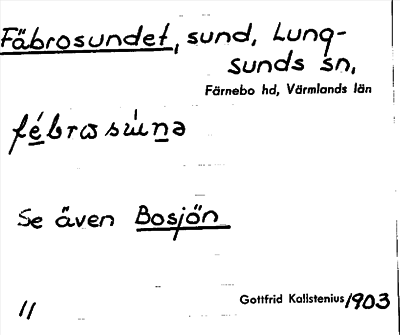 Fäbrosundet, sund, Lung-
sunds sn,
Färnebo hd, Värmlands län
fé̱brɷsùṉə
Se även Bosjön
11
Gottfrid Kallstenius 1903